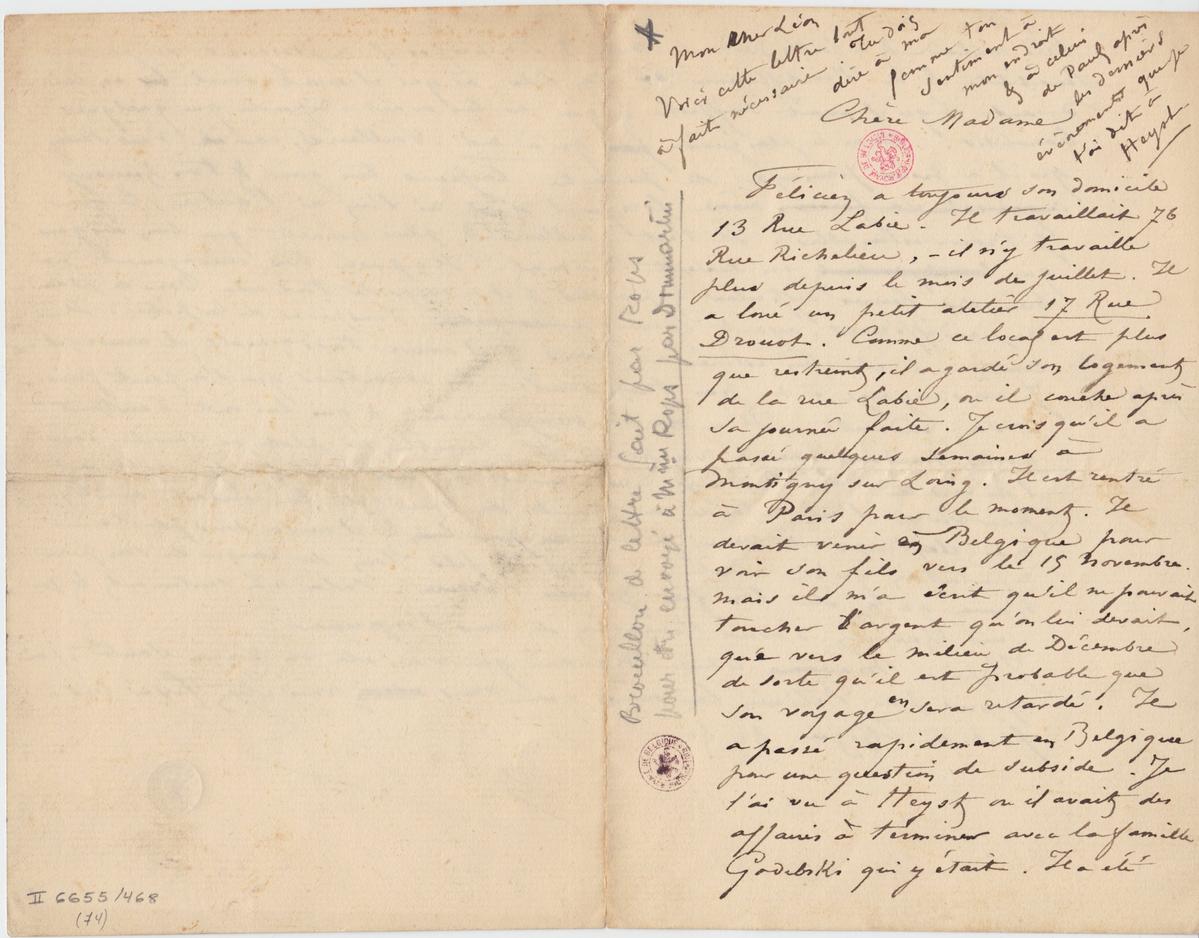 Mon cher Léon
Voici cette lettre tout
à fait nécessaire. Tu dois
dire à ma
femme ton
sentiment à
mon endroit
& à celui
de Paul, après
les derniers
évènements que je
t'ai dit à
Heyst.
Chère Madame,
Félicien a toujours son domicile
13 Rue Labie. Il travaillait 76
Rue Richelieu, – il n'y travaille
plus depuis le mois de juillet. Il
a loué un petit atelier 17 Rue
Drouot. Comme ce local est plus
que restreint, il a gardé son logement
de la rue Labie, ou il couche après
sa journée faite. Je crois qu'il a
passé quelques semaines à
Montigny sur Loing. Il est rentré
à Paris pour le moment. Il
devait venir en Belgique pour
voir son fils vers le 15 novembre.
mais il m'a écrit qu'il ne pouvait
toucher l'argent qu'on lui devait,
que vers le milieu de Décembre
de sorte qu'il est probable que
son voyage en sera retardé. Il
a passé rapidement en Belgique
pour une question de subside. Je
l'ai vu à Heyst ou il avait des
affaires à terminer avec la famille
Godebski qui y était. Il a été
Brouillon de lettre fait par Rops
pour être envoyé à Mme Rops par Dommartin
II 6655/468
(74)